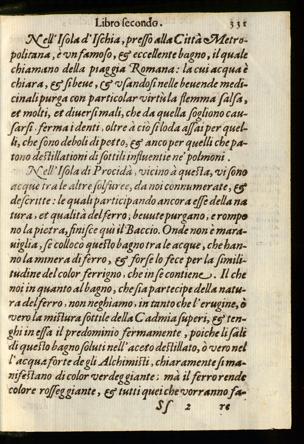 Libro secondo. 331
Nell'Isola d'Ischia, presso alla Città Metro-
politana, è vn famoso, & eccellente bagno, il quale
chiamano della piaggia Romana: la cui acqua è
chiara, & si beue, & vsandosi nelle beuende medi-
cinali purga con particolar virtù la flemma salsa,
et molti, et diuersi mali, che da quella sogliono cau-
sarsi. ferma i denti, oltre à ciò si loda assai per quel-
li, che sono deboli di petto, & anco per quelli che pa-
tono destillationi di sottili influentie ne' polmoni.
Nell'Isola di Procida, vicino à questa, vi sono
acque tra le altre solfuree, da noi connumerate, &
descritte: le quali participando ancora esse della na
tura, et qualità del ferro, beuute purgano, e rompo
no la pietra, finisce quì il Baccio. Onde non è mara-
uiglia, se collocò questo bagno tra le acque, che han-
no la minera di ferro, & forse lo fece per la simili-
tudine del color ferrigno, che in se contiene. Il che
noi in quanto al bagno, che sia partecipe della natu-
ra del ferro, non neghiamo, in tanto che l'erugine, ò
vero la mistura sottile della Cadmia superi, & ten-
ghi in essa il predominio fermamente, poiche li sali
di questo bagno soluti nell'aceto destillato, ò vero nel
l'acqua forte degli Alchimisti, chiaramente si ma-
nifestano di color verdeggiante: mà il ferro rende
colore rosseggiante, & tutti quei che vorranno fa-
Ss 2 re